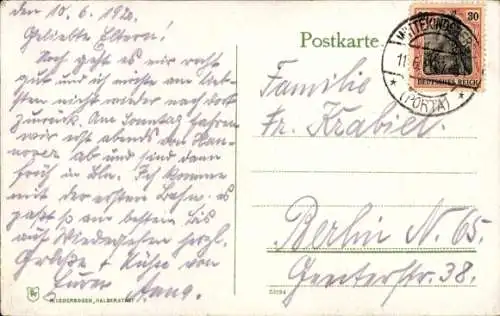 den 10.6.1920.
Geliebte Eltern!
Noch geht es mir recht
gut und ich möchte am
liebsten nicht wieder nach dort
zurück. Am Sonntag fahren
wir erst abends von Han-
nover ab und sind dann
früh in Bln. Ich komme
mit der ersten Bahn. es
paßt so am besten. Bis
auf Wiedersehen herzl.
Grüße + Küsse von
Eurer Anna.
Postkarte
30
DEUTSCHES REICH
(PORTA)
Familie
Fr. Krabiel
Berlin N. 65.
Genterstr. 38.
NIEDERBOGEN, HALBERSTADT